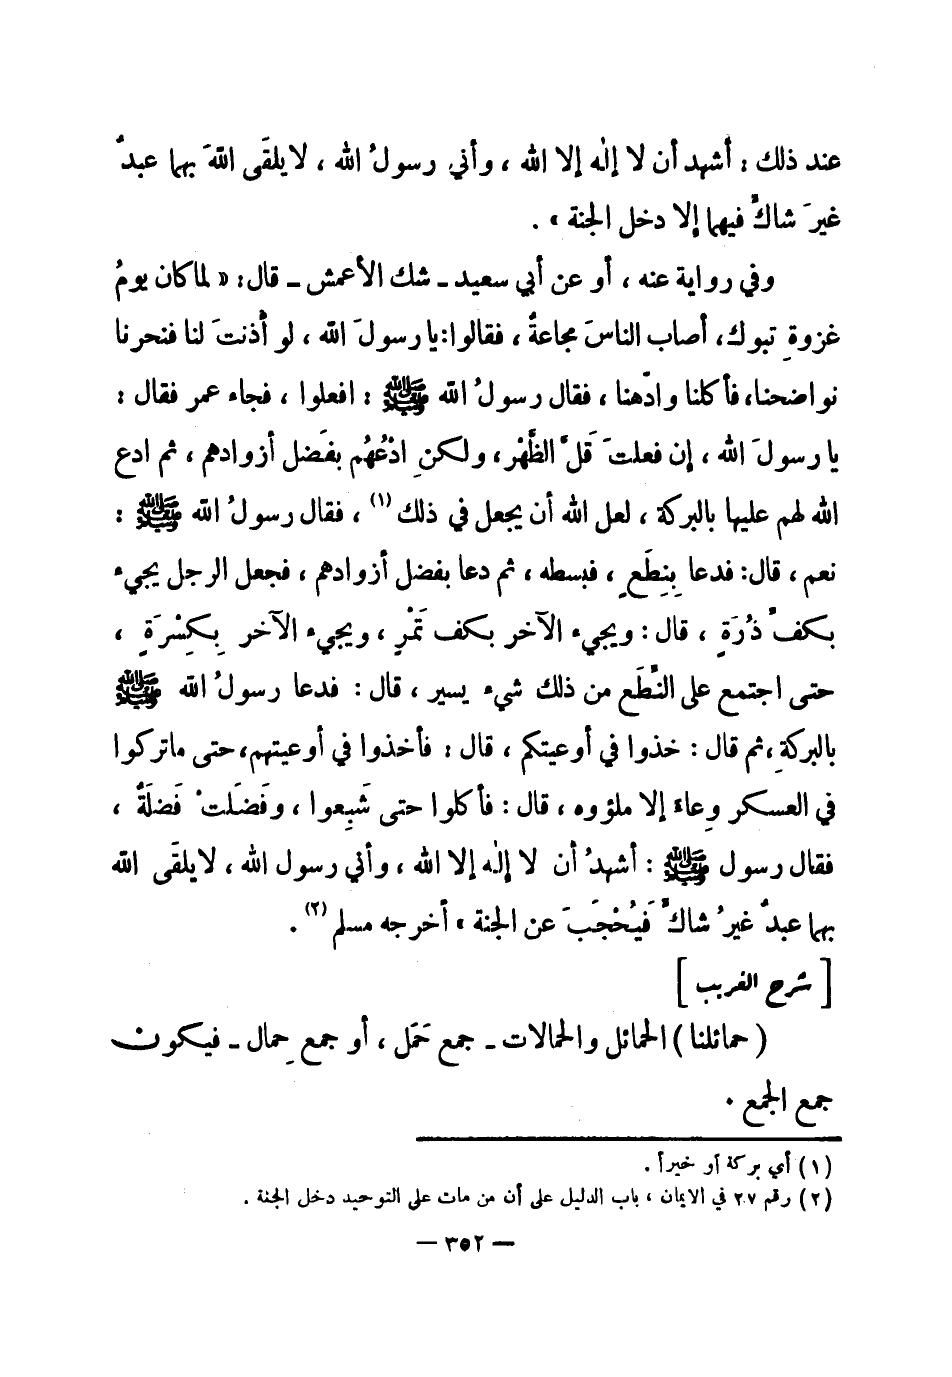 عند ذلك : أشهد أن لا إله إلا الله ، وأني رسولُ الله ، لا يلقَى اللهَ بهما عبدٌ
غيرَ شاكٍّ فيهما إلا دخل الجنة » .
وفي رواية عنه ، أو عن أبي سعيد ـ شك الأعمش ـ قال: « لما كان يومُ
غزوةِ تبوك، أصاب الناسَ مجاعةٌ ، فقالوا: يا رسولَ الله ، لو أذنتَ لنا فنحرنا
نواضحنا، فأكلنا وادّهنا ، فقال رسولُ الله ﷺ : افعلوا ، فجاء عمر فقال :
يا رسولَ الله ، إن فعلتَ قَلَّ الظَّهْر، ولكنِ ادْعُهُم بفَضل أزوادهم ، ثم ادع
الله لهم عليها بالبركة ، لعل الله أن يجعل في ذلك (١) ، فقال رسولُ الله ﷺ :
نعم ، قال: فدعا بِنِطَعٍ ، فبسطه ، ثم دعا بفضل أزوادهم ، فجعل الرجل يجيء
بكفِّ ذُرَةٍ ، قال : ويجيء الآخر بكف تَمْرٍ ، ويجيء الآخر بِكِسْرَةٍ ،
حتى اجتمع على النِّطَع من ذلك شيء يسير ، قال : فدعا رسولُ الله ﷺ
بالبركةِ ،ثم قال : خذوا في أوعيتكم ، قال : فأخذوا في أوعيتهم،حتى ماتركوا
في العسكر وِعاءً إلا ملؤوه ، قال : فأكلوا حتى شَبِعوا ، وفَضَلتْ فَضلَةٌ ،
فقال رسول ﷺ : أشهدُ أن لا إله إلا الله ، وأني رسول الله ، لا يلقَى الله
بهما عبدٌ غيرُ شاكٍّ فَيُحْجَبَ عن الجنة » أخرجه مسلم (٢) .
[ شرح الغريب ]
( حمائلنا ) الحمائل والحمالات ـ جمع حَمَل ، أو جمع حِمال ـ فيكون
جمع الجمع .
(١) أي بركة أو خيراً .
(٢) رقم ٢٧ في الايمان ، باب الدليل على أن من مات على التوحيد دخل الجنة .
— ٣٥٢ —